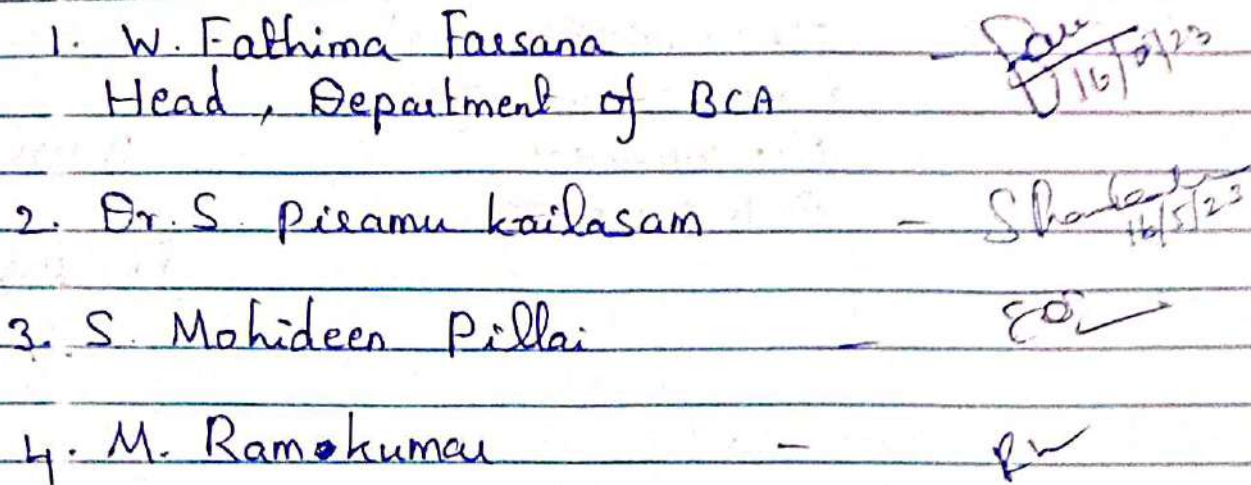 1. W. Fathima Farsana -
16/5/23
Head, Department of BCA
2. Dr. S. Piramu kailasam -
16/5/23
3. S. Mohideen Pillai -
4. M. Ramakumar -